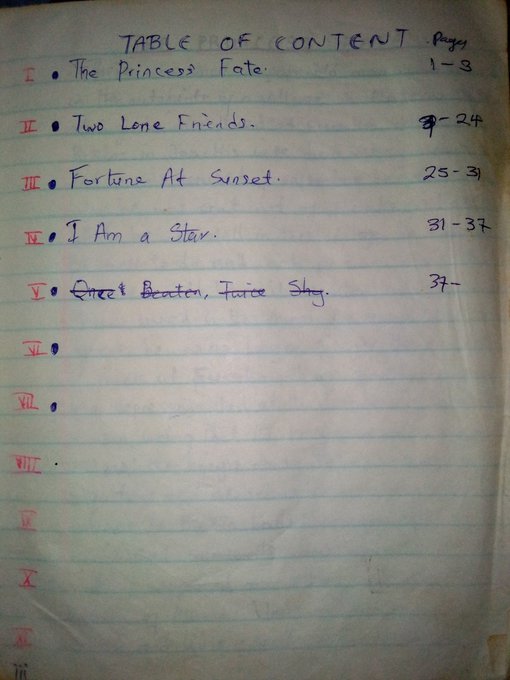 TABLE OF CONTENT Pages
I • The Princess' Fate. 1-3
II • Two Lone Friends. - 24
III • Fortune At Sunset. 25-31
IV • I Am a Star. 31-37
V • Beaten, Twice Shy. 37-
VI •
VII •
VIII •
IX
X
XI
III